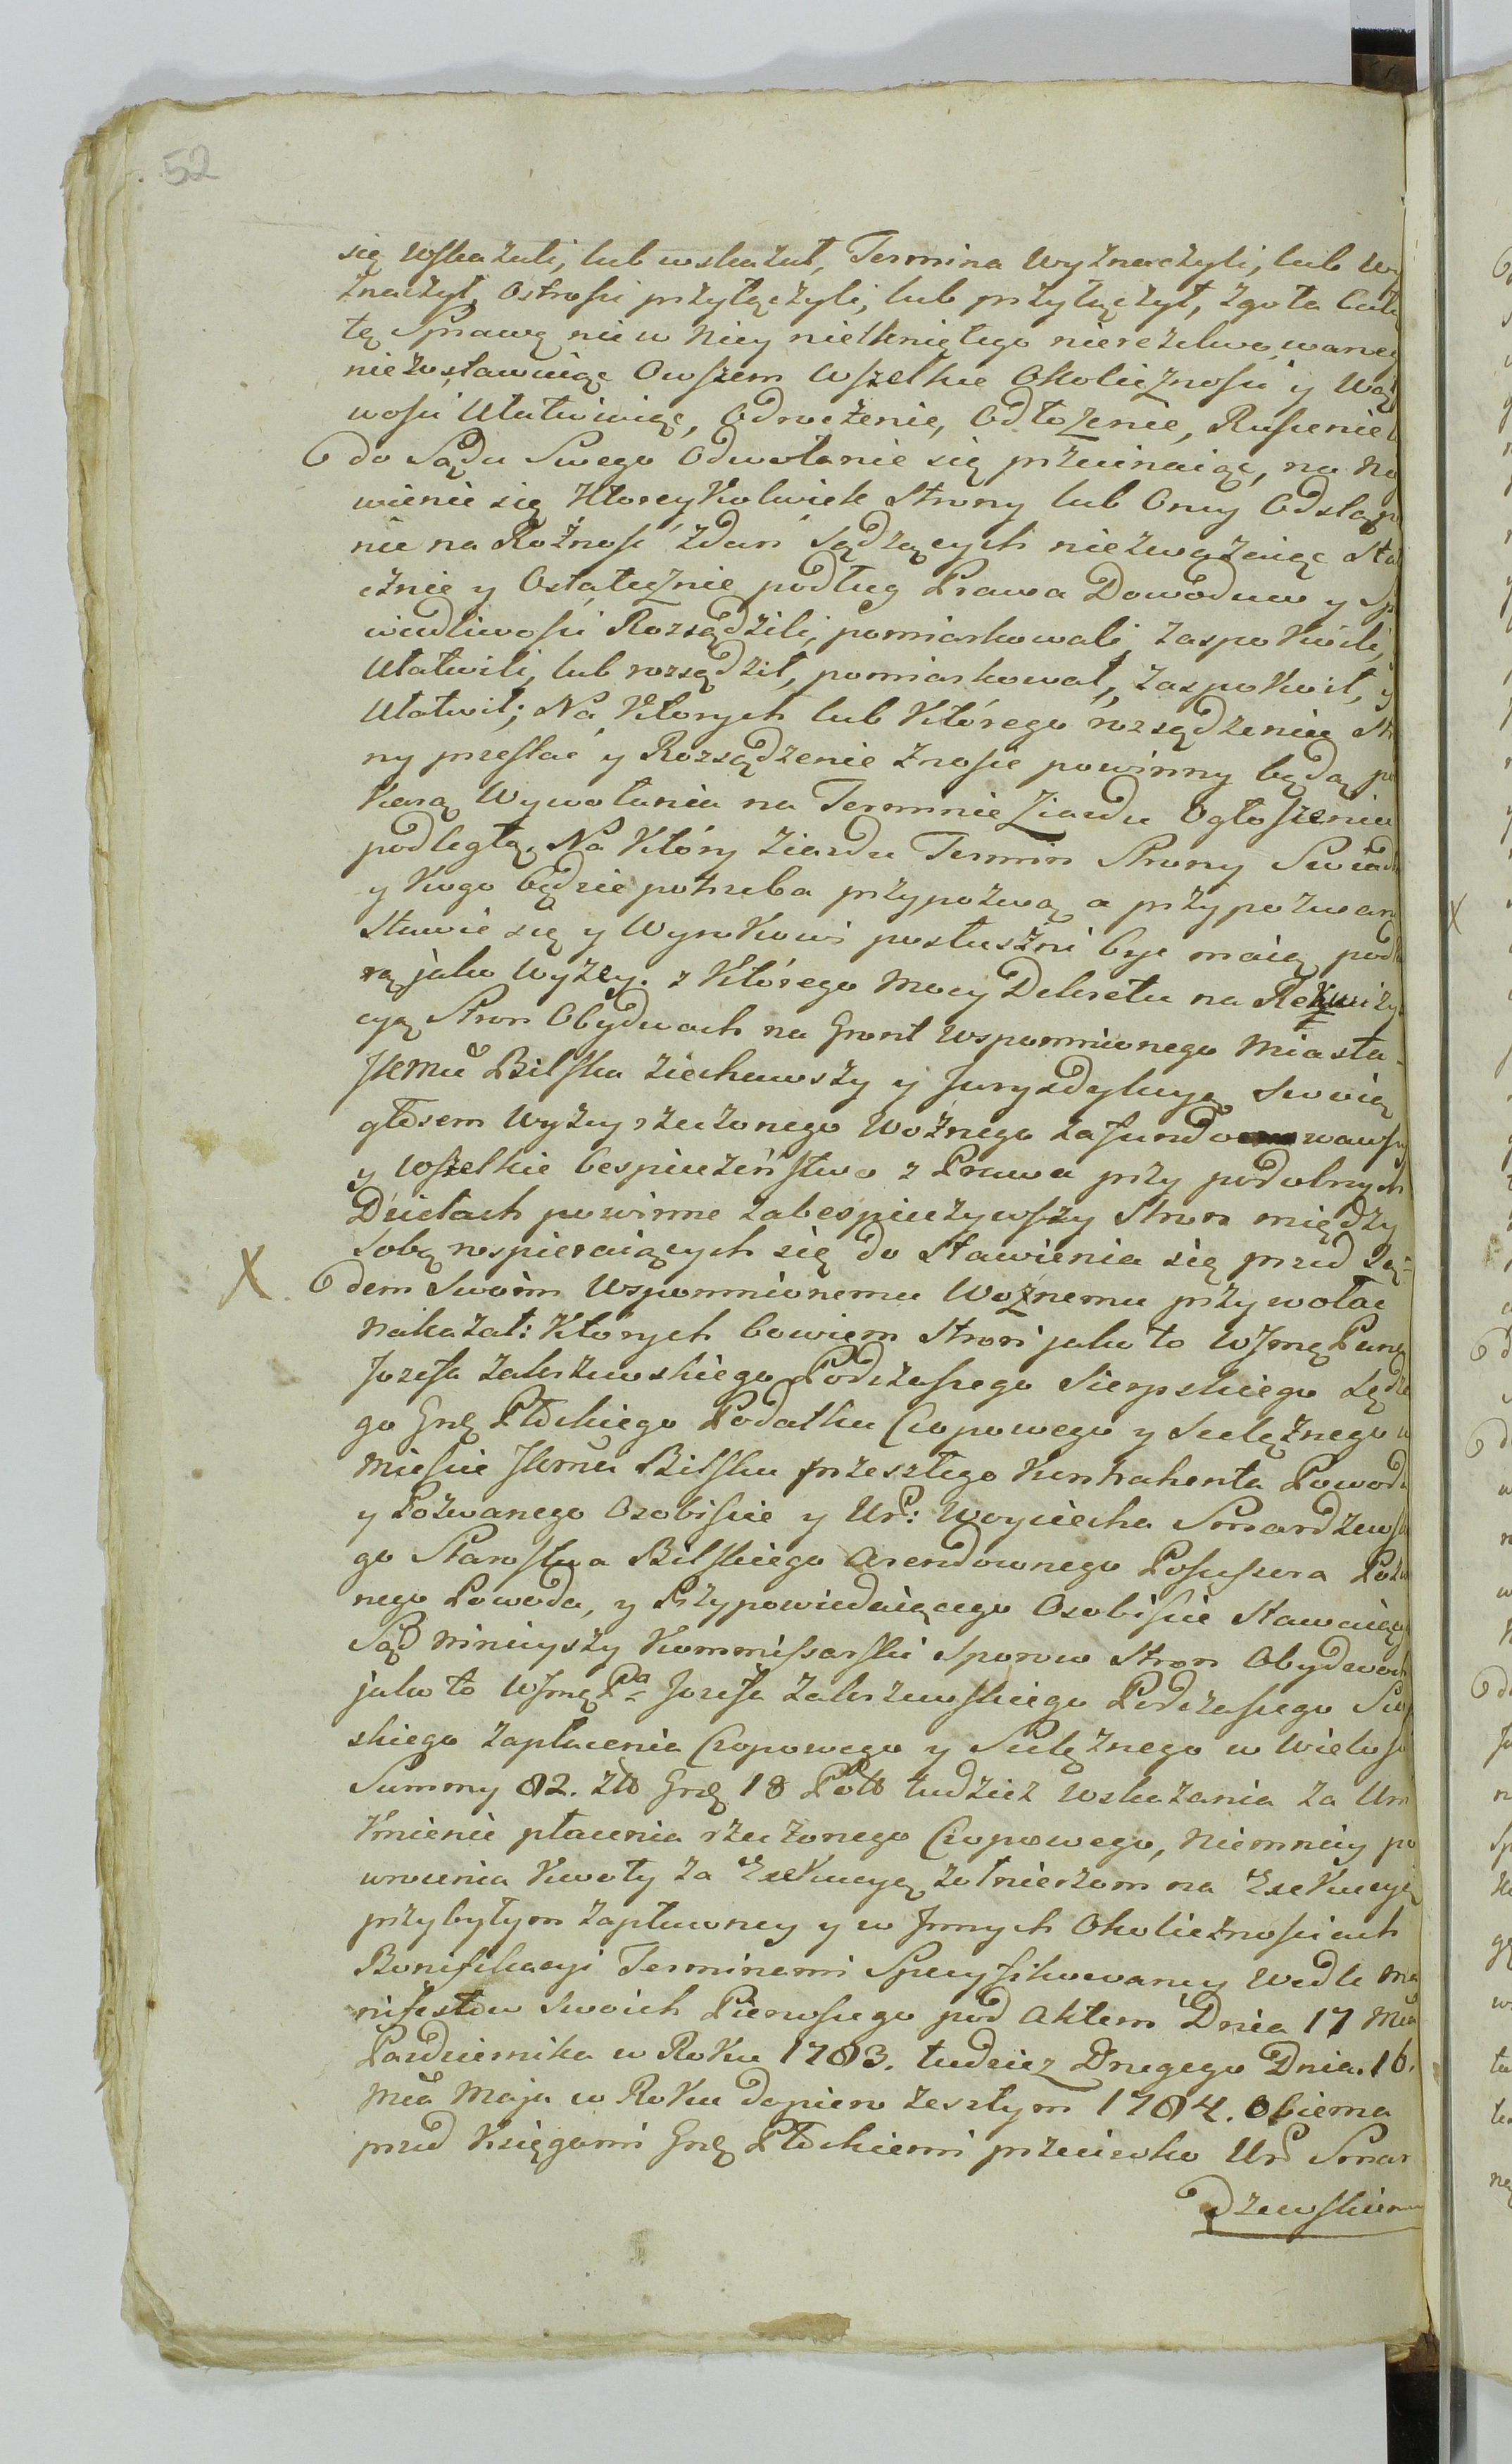 52
się wskazali, lub wskazał, Termina wyznaczyli, lub wy
znaczył, Ostrości przyłączyli, lub przyłączył, zgoła całą
tę Sprawę nic w niey nietkniętego nierezolwowanego
niezostawuiąc Owszem wszelkie Okoliczności y Wąt
wości Ułatwiaiąc, Odwłożenie, Odłożenie, Ruszenie
do Sądu Swego Odwołanie się przecinaiąc, na
wienie się Ktoreykolwiek Strony lub Oney Odstąp
nie na Rożność zdań Sądzących niezważaiąc Sta
cznie y Ostatecznie podług Prawa Dowodow y Sp
wiedliwości Rozsądzili, pomiarkowali, zaspokoili,
Ułatwili, lub rozsądził, pomiarkował, zaspokoił, y
Ułatwił; Na Ktorych lub Którego rozsądzeniu St
ny przestać y Rozsądzenie znosić powinny będą po
Karą Wywołania na Terminie Ziazdu Ogłoszeniu
podległą. Na Który Ziazdu Termin Strony Swiad
y Kogo będzie potrzeba przypozwą a przypozwan
Stawić się y Wyrokowi posłuszni bydź maią pod
rą jako wyzey. z Którego Mocy Dekretu na Rekwizy
cyą Stron Obydwoch na Grunt wspomnionego Miasta
JKMci Bilska ziechawszy y Juryzdykcyą Swoią
głosem wyzey rzeczonego Woznego zafundowawszy
y wszelkie bespieczeństwo z Prawa przy podobnych
Dziełach powinne zabespieczywszy Stron między
Sobą rospieraiących się do Stawienia się przed Są-
X dem Swoim Wspomnionemu Woznemu przywołać
nakazał: Których bowiem Stron jako to WJmć Pana
Jozefa Zakrzewskiego Podczaszego Sierpskiego Sędzie
go Grdz Płockiego Podatku Czopowego y Szelężnego w
Mieście JKMci Bilsku przeszłego Kontrahenta Powoda
y Pozwanego Osobiście y Ur: Woyciecha Smardzewski
go Starostwa Bilskiego Arendownego Possessora Pozwa
nego Powoda, y Przypowiedaiącego Osobiście Stawaiąc
Sąd ninieyszy Kommissarski Sporow Stron Obydwoch
jako to WJmć Pa Jozefa Zakrzewskiego Podczaszego Sier
skiego zapłacenia Czopowego y Szelężnego w Wielości
Summy 82. Zł Gr 18 Pol tudziez wskazania za Um
knienie płacenia rzeczonego Czopowego, niemniey po
wrocenia Kwoty za Exekucyą zołnierzom na Exekucyą
przybyłym zapłaconey y w Jnnych Okolicznościach
Bonifikacyi Terminami Specyfikowaney wedle Ma
nifestow Swoich Pierwszego pod Aktem Dnia 17 Mca
Pazdziernika w Roku 1783. tudziez Drugiego Dnia. 16.
Mca Maja w Roku dopiero zeszłym 1784. Obiema
przed Xięgami Grdz Płockiemi przeciwko Ur Smar
dzewskiemu